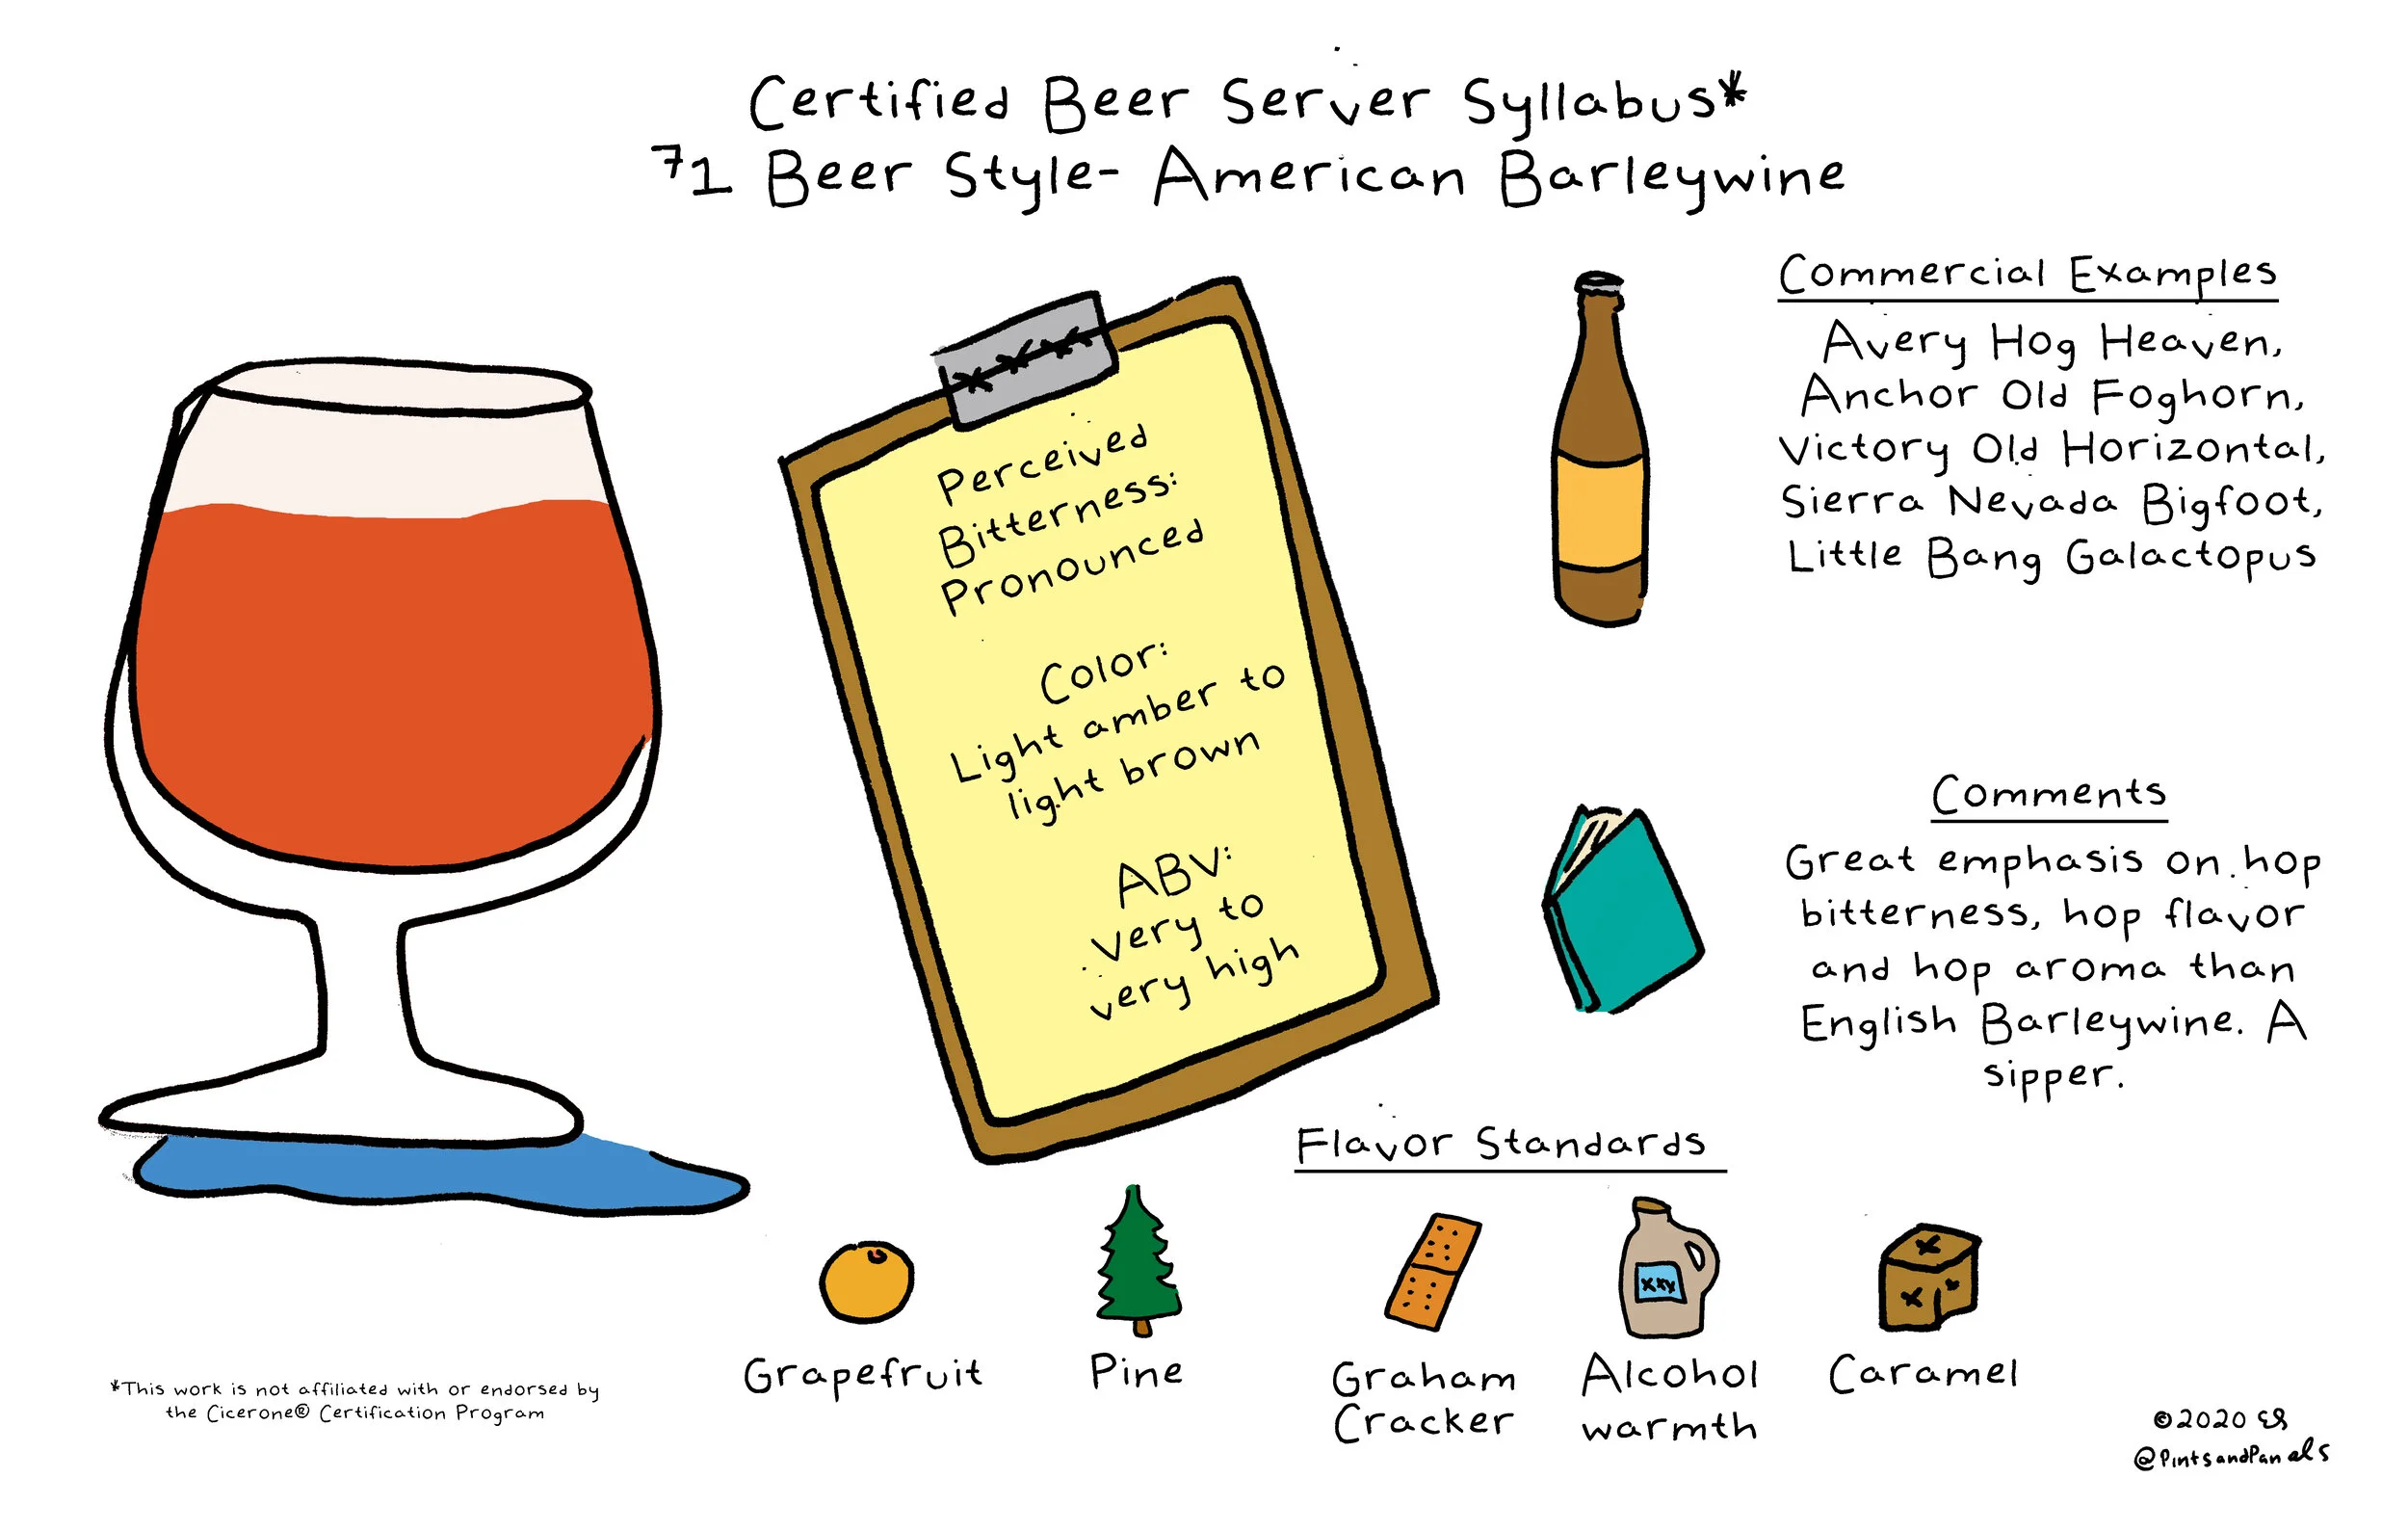 Certified Beer Server Syllabus*
71 Beer Style- American Barleywine
Commercial Examples
Avery Hog Heaven,
Anchor Old Foghorn,
Victory Old Horizontal,
Sierra Nevada Bigfoot,
Little Bang Galactopus
Perceived
Bitterness:
Pronounced
Color:
Light amber to
light brown
ABV:
very to
very high
Comments
Great emphasis on hop
bitterness, hop flavor
and hop aroma than
English Barleywine. A
sipper.
Flavor Standards
Grapefruit
Pine
Graham
Cracker
XXX
Alcohol
warmth
Caramel
*This work is not affiliated with or endorsed by
the Cicerone® Certification Program
©2020 ES
@PintsandPanels